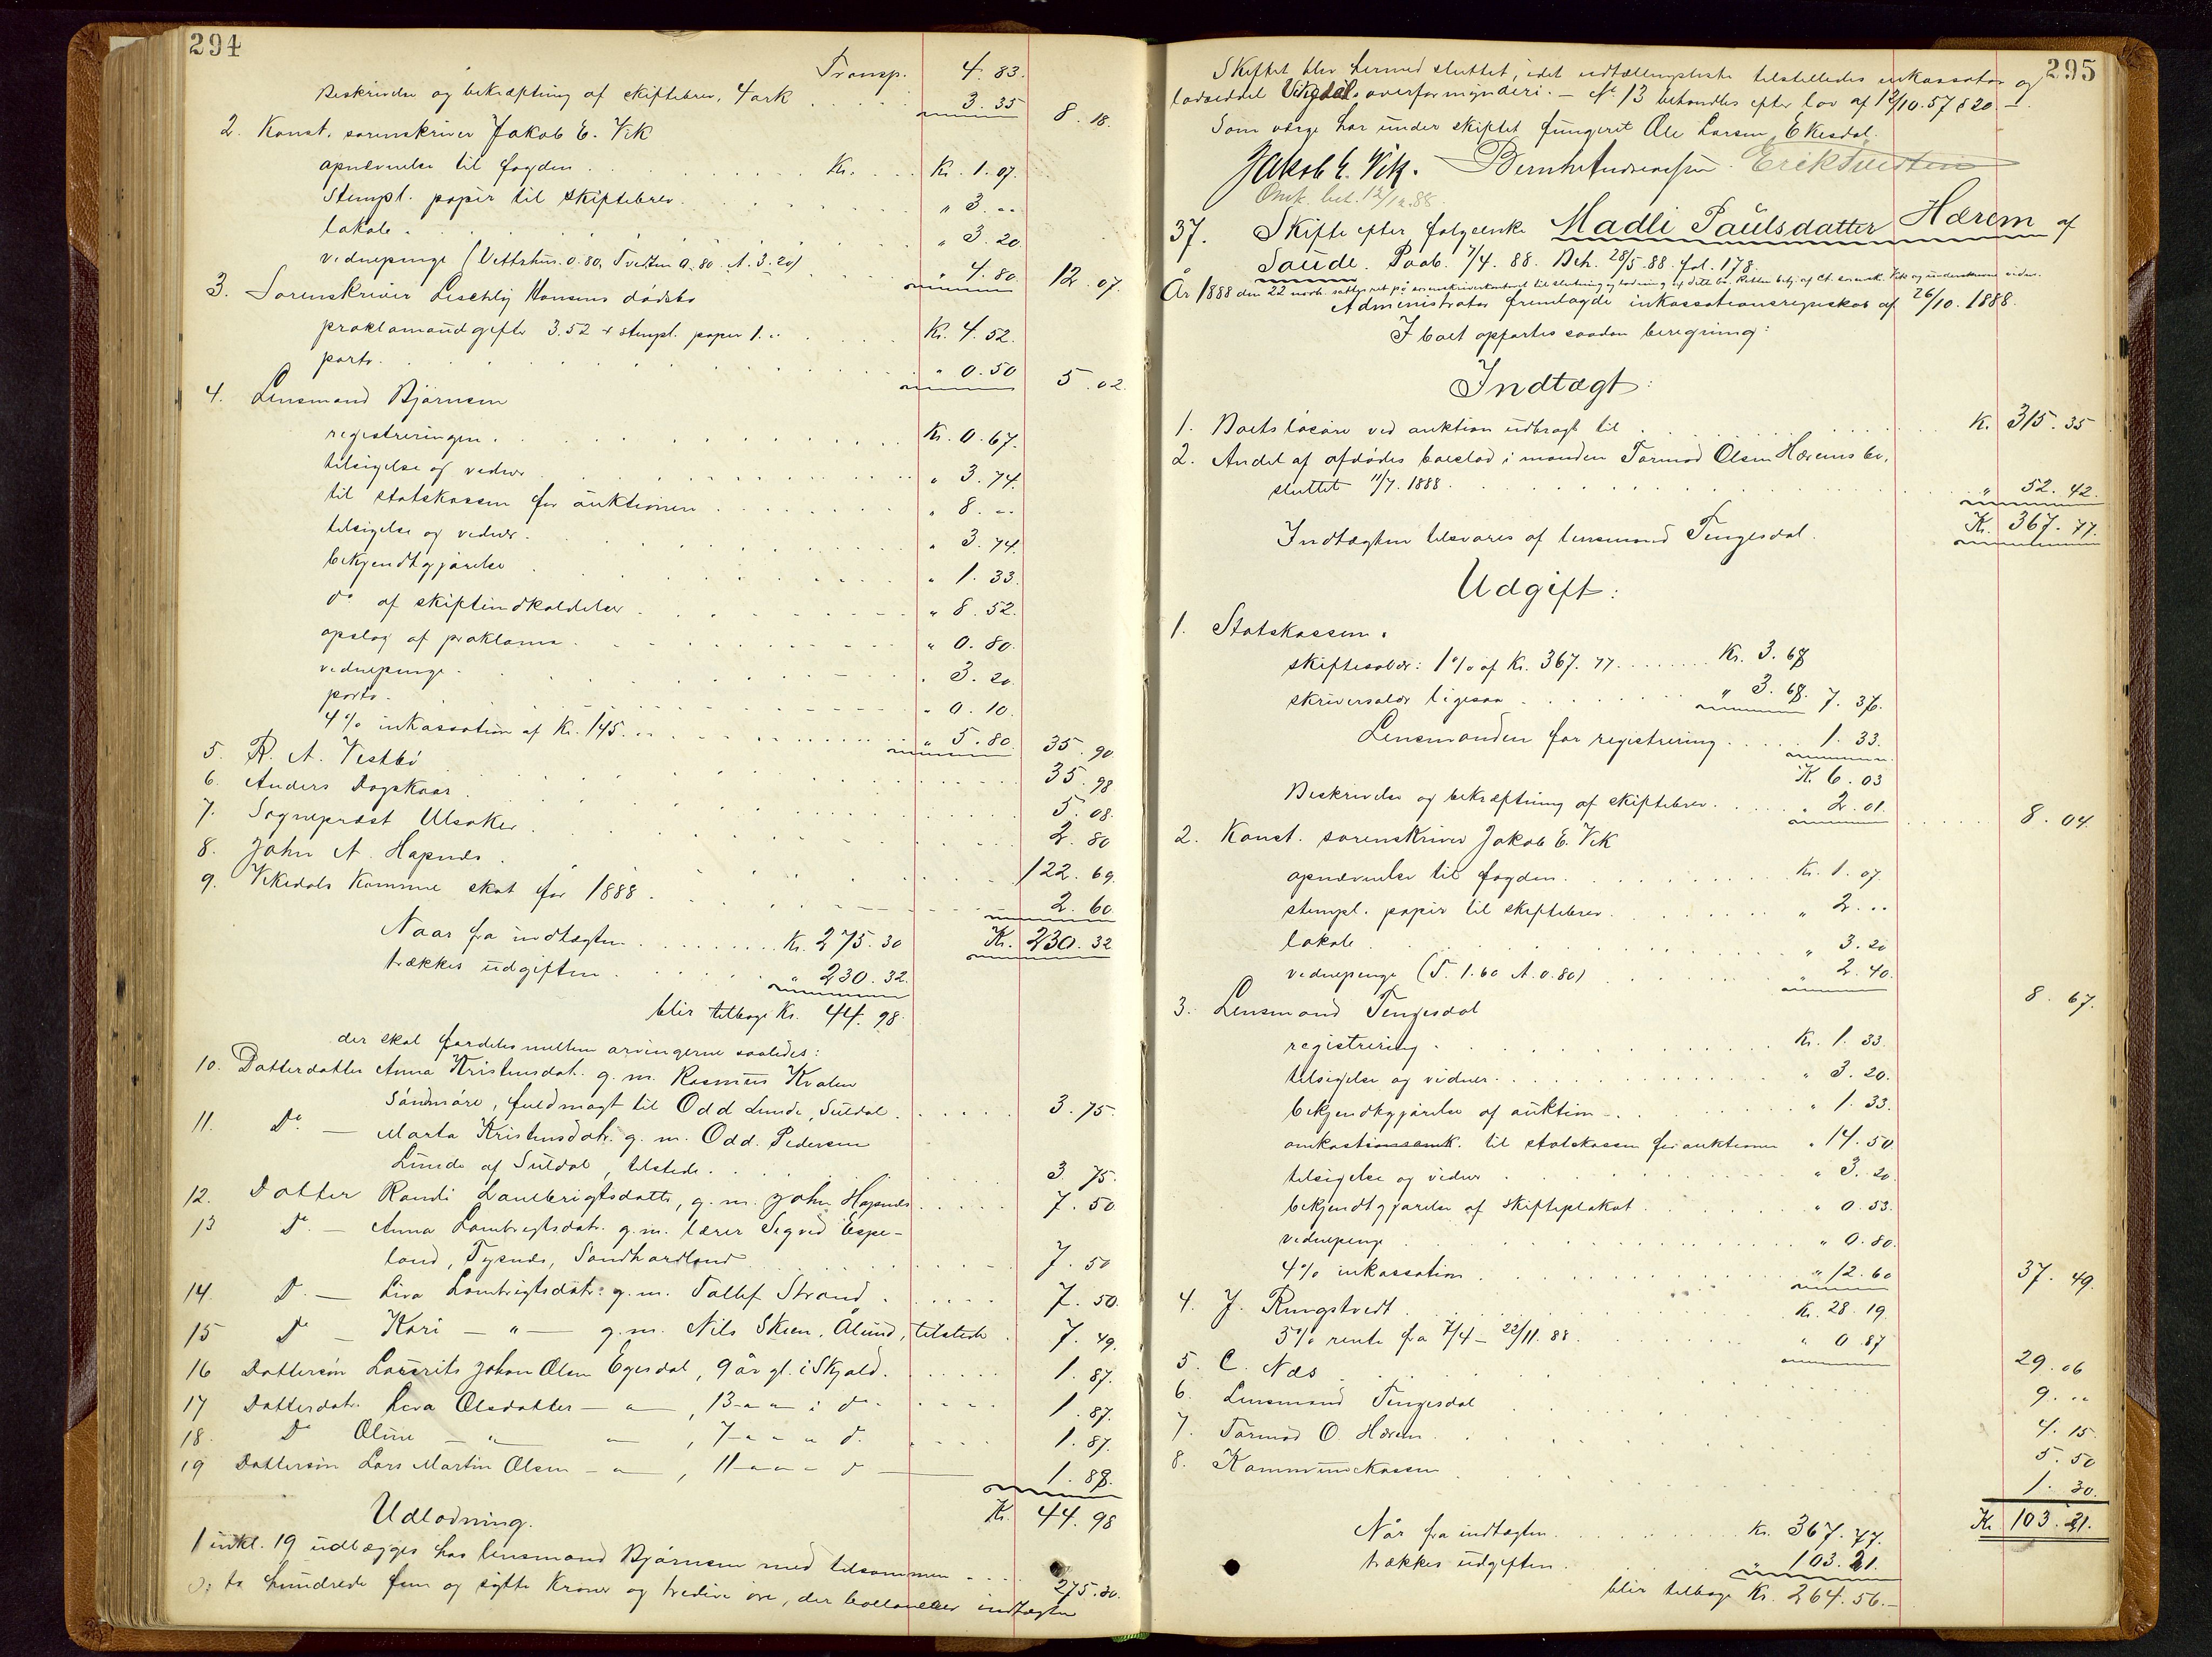 294
Transp. 4. 83.
Beskrivelse og bekræftning af skiftebrev, 4 ark . . . . 3. 35 8. 18.
2. Konst. sorenskriver Jakob E. Vik
opnævnelse til fogden . . . . Kr. . . . Kr. 1. 07.
Stempl. papir til skiftebrev . . . . „ 3. --
lokale . . . . „ 3. 20
vidnepenge (Vettrhus. 0.80, Tvedten 0.80 A. 3.20) . . . „ 4. 80. 12. 07.
3. Sorenskriver Leschly Hansens dødsbo
proklamaudgifter 3.52 + stempl. papir 1. -- . . . . Kr. 4. 52.
porto . . . . „ 0. 50 5. 02.
4. Lensmand Bjørnsen
registreringen . . . . Kr. 0. 67.
tilsigelse og vidner . . . . „ 3. 74.
til statskassen for auktionen . . . . „ 8. --
tilsigelse og vidner . . . . „ 3. 74.
bekjendtgjørelse . . . . „ 1. 33.
do af skifteindkaldelser . . . . „ 8. 52.
opslag af proklama . . . . „ 0. 80.
vidnepenge . . . . „ 3. 20
porto . . . . „ 0. 10.
4 % inkassation af Kr. 145. -- . . . . „ 5. 80. 35. 90
5. R. A. Vestbø . . . . 35. 98
6. Anders Dogskaar . . . . 5. 08.
7. Sogneprest Ulsaker . . . . 2. 80
8. John A. Hapnes . . . . 122. 69.
9. Vikedals Kommune skat for 1888 . . . . 2. 60
Naar fra indtægten . . . . Kr. 275. 30 Kr. 230. 32
trækkes udgiften . . . . „ 230. 32.
blir tilbage Kr. 44. 98.
der skal fordeles mellem arvingerne saaledes:
10. Datterdatter Anna Kristensdatr. g. m. Rasmus Kvalen
Søndmøre, fuldmagt til Odd Lunde, Suldal . . . . 3. 75.
11. Do. — Marta Kristensdatr. g. m. Odd. Pedersen
Lunde af Suldal, tilstede . . . . 3 75.
12. Datter Randi Laurbrigtsdatter, g. m. John Hapnes . . . . 7. 50
13 Do. — Anna Lambrigtsdatr. g. m. lærer Sigvid Espe-
land, Tysnes, Søndhordland . . . . 7. 50
14. Do. — Liva Lambrigtsdatr. g. m. Tollef Strand . . . . 7. 50.
15 Do — Kari — „ — g. m. Nils Skeen, Ølund, tilstede . 7. 49.
16 Dattersøn Lauerits Johan Olsen Egesdal, 9 år gl. i Skjold . . . . 1. 87.
17 Datterdatr. Liva Olsdatter — „ — , 13 - „ - „ i do . . . . 1. 87.
18. Do Oline — „ — „ — , 7 - „ - „ do. . . . 1. 87.
19 Dattersøn Lars Martin Olsen — „ — , 11 - „ - „ do — 1. 88.
Kr. 44. 98
Udlodning.
1 inkl. 19 udlægges hos lensmand Bjørnsen med tilsammen . . . 275. 30.
ɔ: to hundrede fem og sytti Kroner og tredive øre, der ballancerer indtægten
295
Skiftet blev hermed sluttet, idet udtællingsliste tilstilledes inkassator og
lodseddel Vikedals overformynderi. — No 13 behandles efter lov af 12/10. 57 § 20. —
Som værge har under skiftet fungeret Ole Larsen Ekesdal.
Jakob E. Vik. Bernh. Andreassen. Erik Tvedten
Omk. bet. 12/12. 88.
37. Skifte efter folgeenke Madli Paulsdatter Hærem af
Saude. Paab. 7/4. 88. Beh. 28/5. 88. fol. 178.
År 1888 den 22 novb. sattes ret på sorenskriverkontoret til slutning og lodning af dette bo. Retten betj. af ct. sorensk. Vik og underskrevne vidner.
Administrator fremlagde inkassationsregnskab af 26/10. 1888.
I boet opførtes saadan beregning:
Indtægt:
1. Boets løsøre ved auktion udbragt til . . . . K. 315. 35
2. Andel af afdødes boeslod i manden Tormod Olsen Hærems bo,
sluttet 11/7. 1888 . . . . „ 52. 42.
Indtægten tilsvares af lensmand Tengesdal. Kr. 367. 77.
Udgift:
1. Statskassen.
skiftesalær: 1 % af Kr. 367. 77 . . . . Kr. 3. 68
skriversalær ligesaa . . . . „ 3. 68. 7. 36.
Lensmanden for registrering . . . . 1. 33.
K. 6. 03
Beskrivelse og bekræftning af skiftebrev . . . . „ 2. 01. 8. 04.
2. Konst. sorenskriver Jakob E. Vik
opnævnelse til fogden . . . . Kr. 1. 07.
stempl. papir til skiftebrev . . . . „ 2. --
lokale . . . . „ 3. 20
vidnepenge (T. 1.60 A. 0.80) . . . . „ 2. 40. 8. 67.
3. Lensmand Tengesdal
registrering . . . . Kr. 1. 33.
tilsigelse og vidner . . . . „ 3. 20.
bekjendtgjørelse af auktion . . . . „ 1. 33.
omkostn til statskassen for auktionen „ 14. 50
tilsigelse og vidner . . . . „ 3. 20.
bekjendtgjørelse af skifteplakat . . . . „ 0. 53.
vidnepenge . . . . „ 0. 80.
4 % inkassation . . . . „ 12. 60 37. 49.
4. J. Ringstvedt . . . . Kr. 28. 19
5 % rente fra 7/4 – 22/11. 88 . . . . „ 0. 87 29. 06
5. C. Næs . . . . 9. --
6. Lensmand Tengesdal . . . . 4. 15.
7. Tormod O. Hærem . . . . 5. 50
8. Kommunekassen . . . . 1. 30.
Når fra indtægten . . . . Kr. 367. 77. Kr 103. 21.
trækkes udgiften . . . . „ 103. 21.
blir tilbage Kr. 264. 56. —